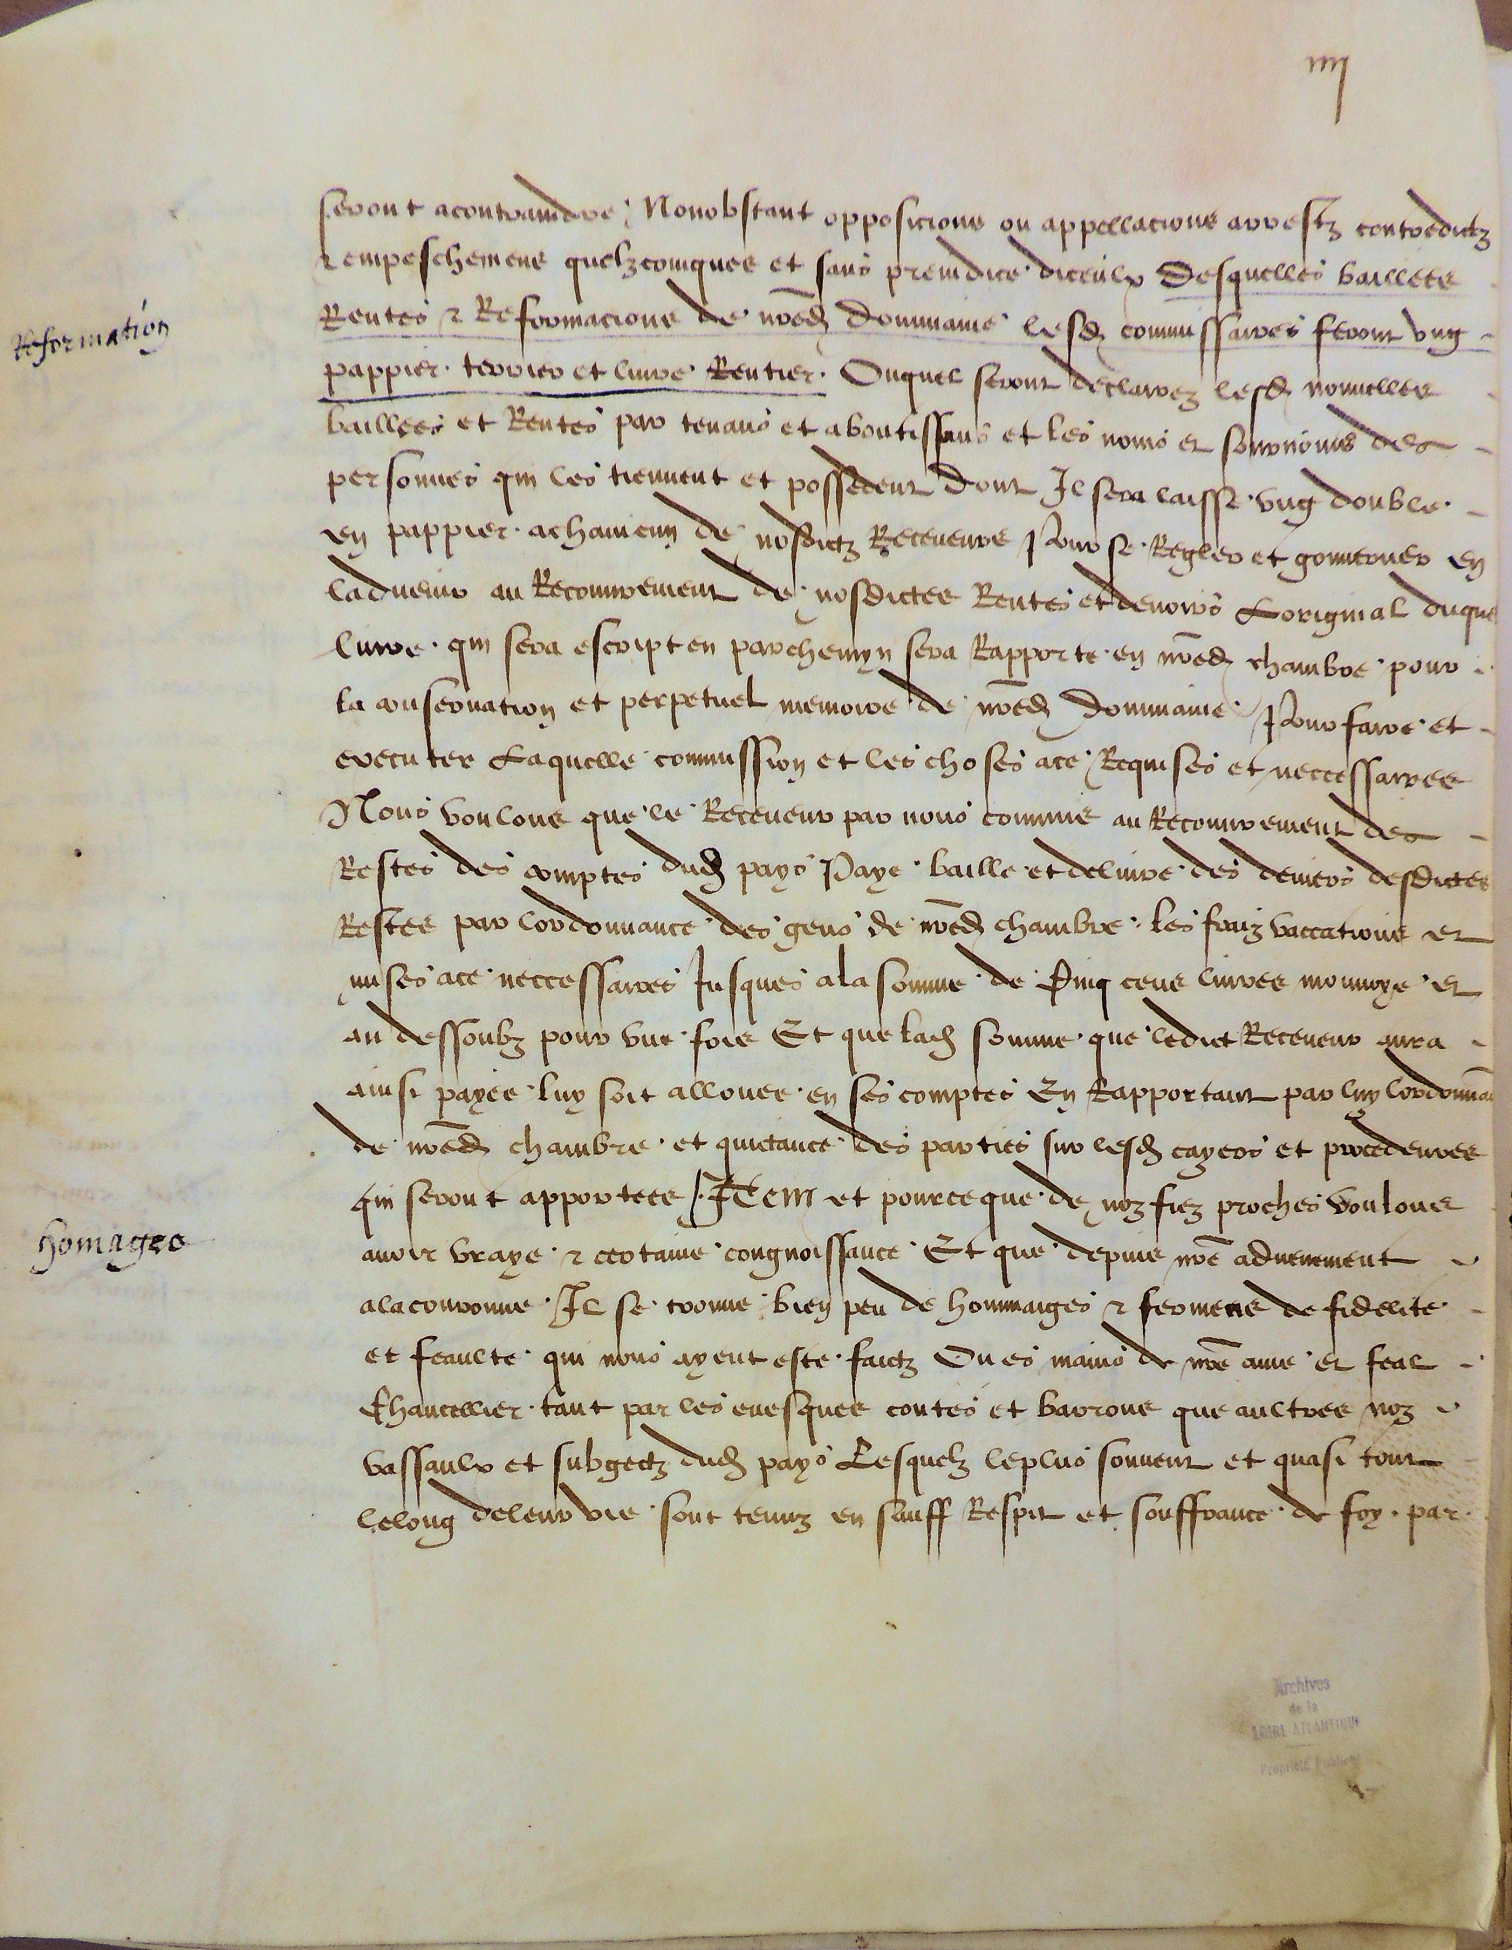 iiij
seront acontraindre Nonobstant opposicions ou appellacions arrestz contredictz
& empeschemens quelzconques et sans preiudice diceulx Desquelles baillees
Reformation
Rentes & Reformacions de nred domaine lesd commissaires feront ung
pappier terrier et livre Rentier Ouquel seront declarez lesd nouvelles
baillees et Rentes par tenans et aboutissans et les noms et sournoms des
personnes qui les tiennent et possedent Dont Il sera laisse ung double
en pappier achaincun de nosdictz Receveurs Pour se Regler et gouverner en
ladvenir au Recouvrement de nosdictes Rentes et devoirs Loriginal duquel
livre qui sera escript en parchemyn sera Rapporte en nred chambre pour
la conservation et perpetuel memoire de nred domaine Pour faire et
executer Laquelle commission et les choses ace Requises et neccessaires
Nous voulons que le Receveur par nous commis au Recouvrement des
Restes des comptes dud pays Paye baille et delivre des deniers desdictes
Restes par lordonnance des gens de nred chambre les fraiz vaccations et
mises ace neccessaires Jusques ala somme de Cinq cens livres monnoye et
au dessoubz pour une fois Et que lad somme que ledict Receveur aura
ainsi payee luy soit allouee en ses comptes En Rapportant par luy lordonnance
de nred chambre et quictance des parties sur lesd cayers et procedeures
qui seront apportees Item et pource que de noz fiez proches voulons
homages
avoir vraye & certaine congnoissance Et que depuis nre advenement
ala couronne Il se trouve bien peu de hommaiges & sermens de fidelite
et feaulte qui nous ayent este faictz Ou es mains de nre ame et feal
Chancellier tant par les evesques contes et barrons que aultres noz
vassaulx et subgectz dud pays Lesquelz leplus souvent et quasi tout
lelong deleur vie sont tenuz en sauff Respit et souffrance de foy par
Archives
de la
LOIRE ATLANTIQUE
Propriété Publique